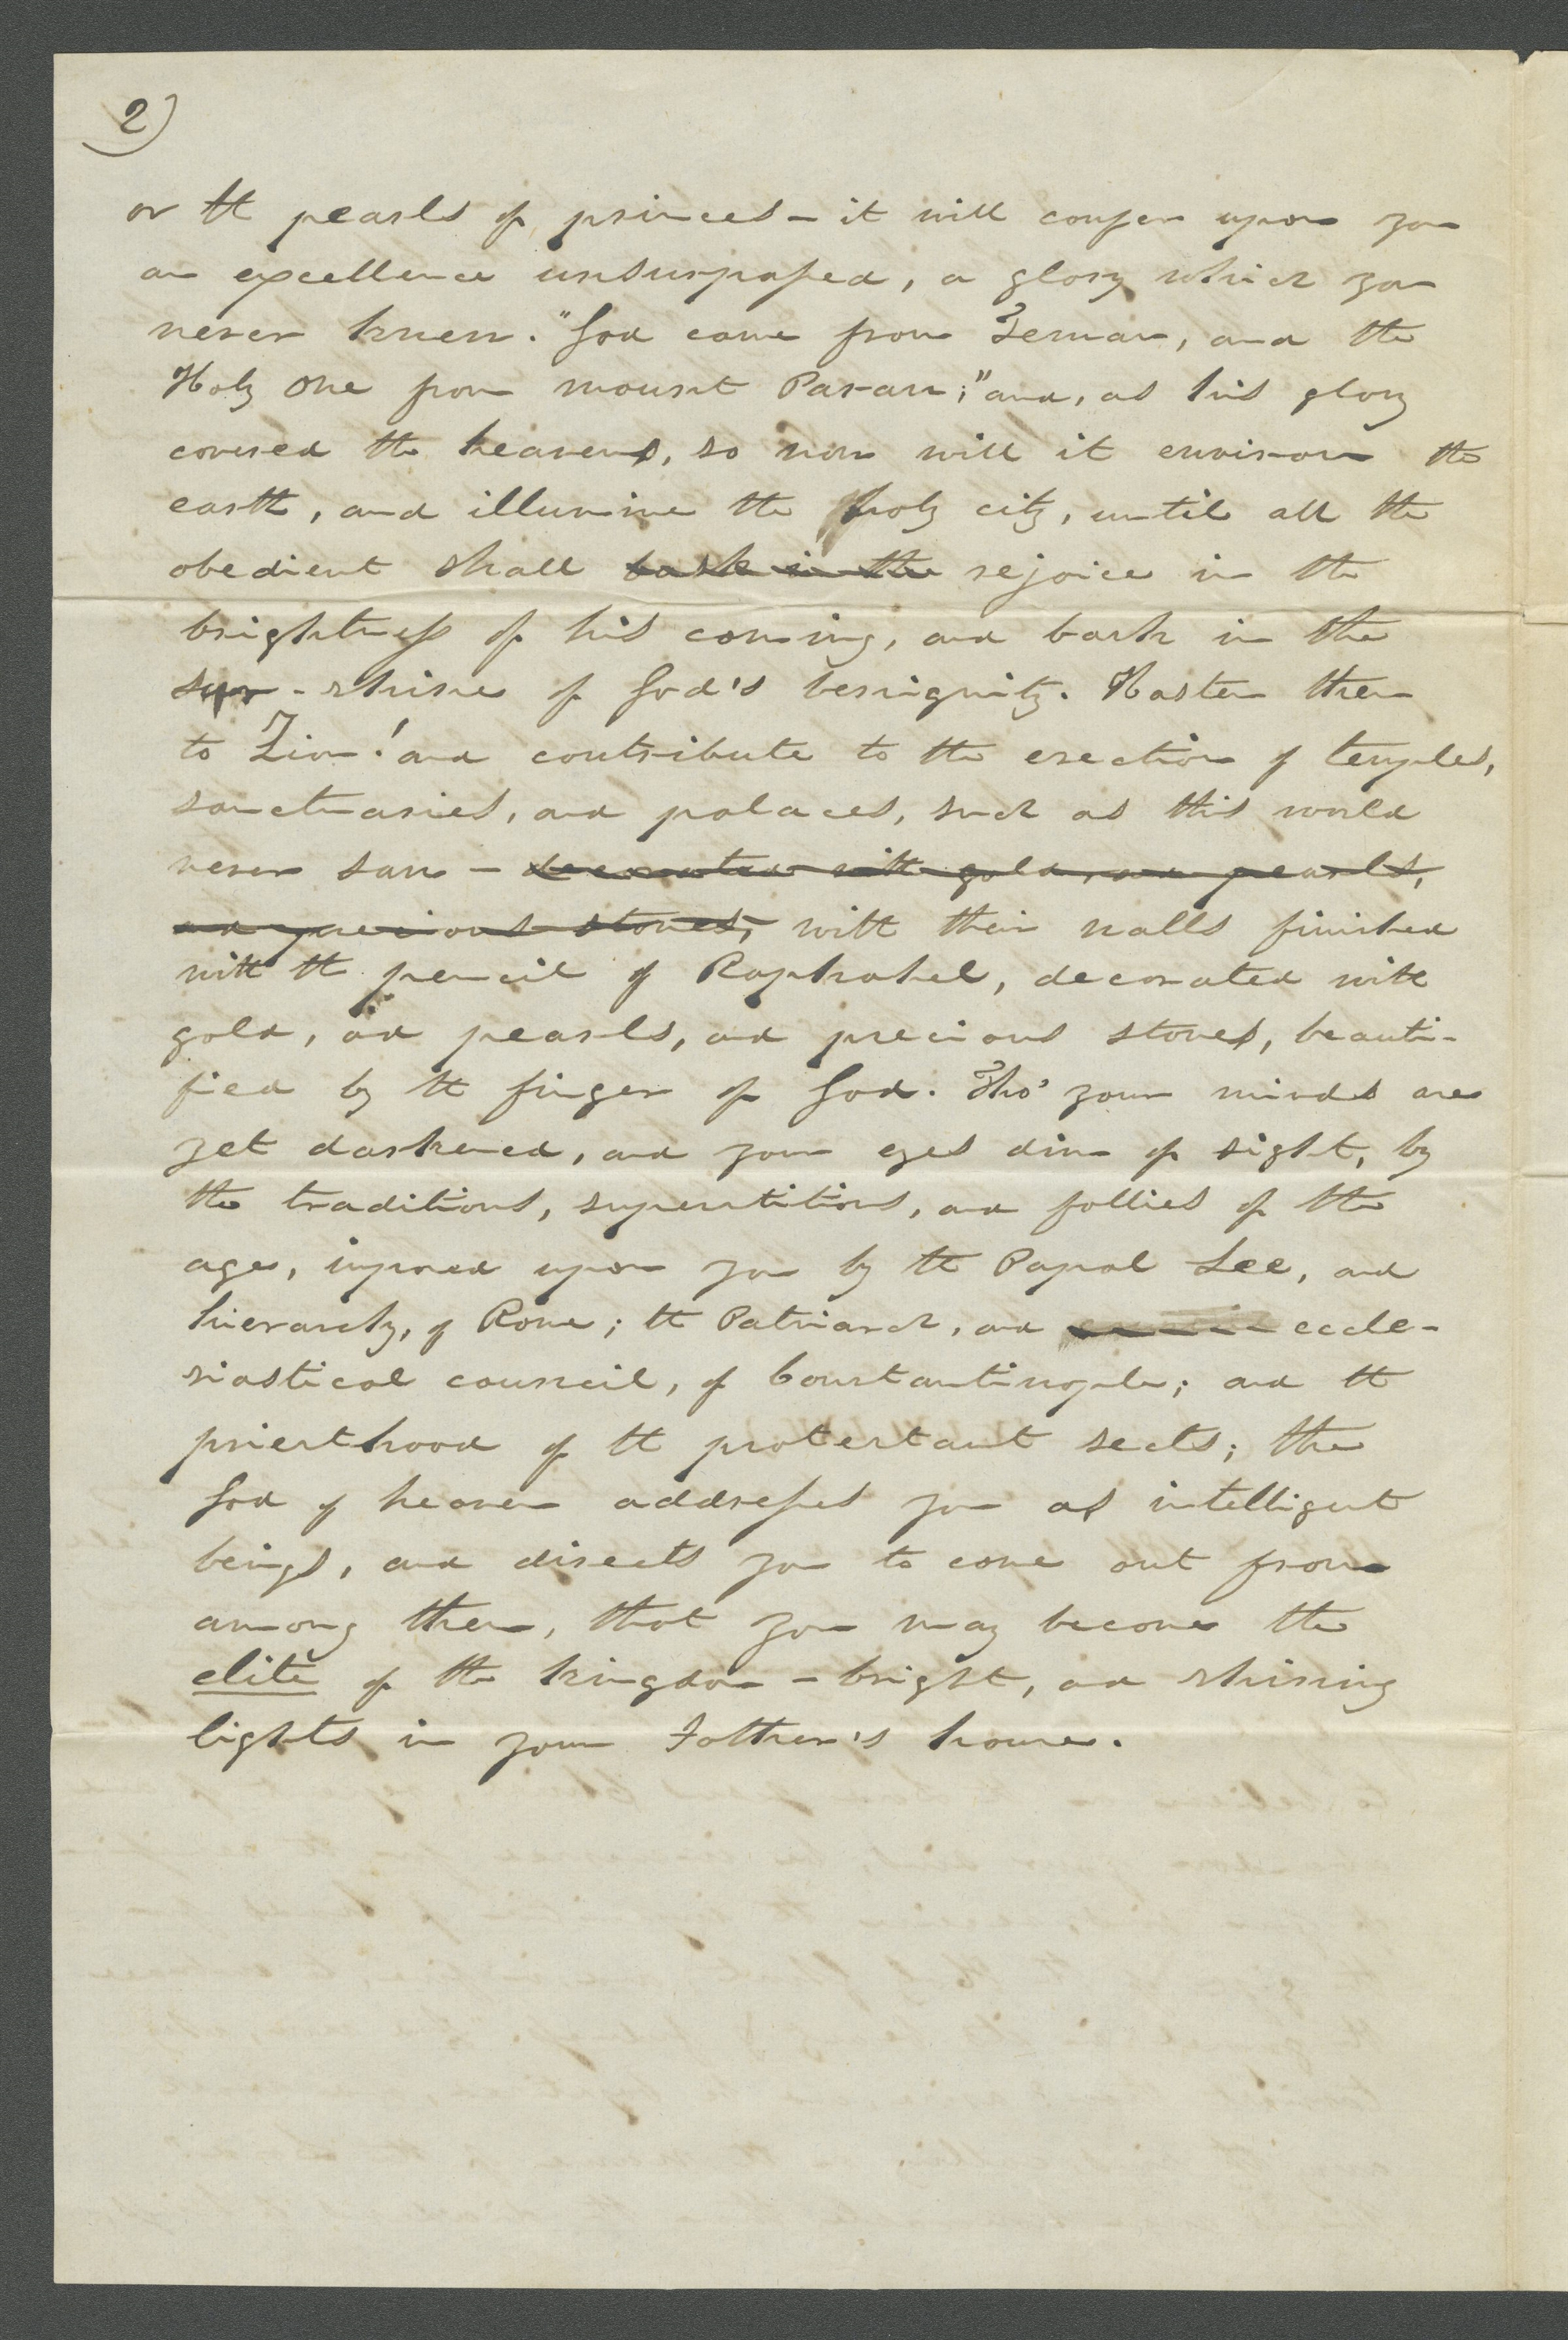 2)
or the pearls of princes – it will confer upon you
an excellence unsurpassed, a glory which you
never knew. "God came from Teman, and the
Holy One from mount Paran;" and, as his glory
covered the heavens, so now will it environ the
earth, and illumine the holy city, until all the
obedient shall bask in the rejoice in the
brightness of his coming, and bask in the
sun-shine of God's benignity. Hasten then
to Zion! and contribute to the erection of temples,
sanctuaries, and palaces, such as this world
never saw – decorated with gold, and pearls,
and precious stones, with their walls finished
with the pencil of Raphahel, decorated with
gold, and pearls, and precious stones, beauti-
fied by the finger of God. Tho' your minds are
yet darkened, and your eyes dim of sight, by
the traditions, superstitions, and follies of the
age, imposed upon you by the Papal See, and
hierarchy, of Rome; the Patriarch, and eccle-
siastical council, of Constantinople; and the
priesthood of the protestant sects; the
God of heaven addresses you as intelligent
beings, and directs you to come out from
among them, that you may become the
elite of the kingdom – bright, and shining
lights in your Father's house.